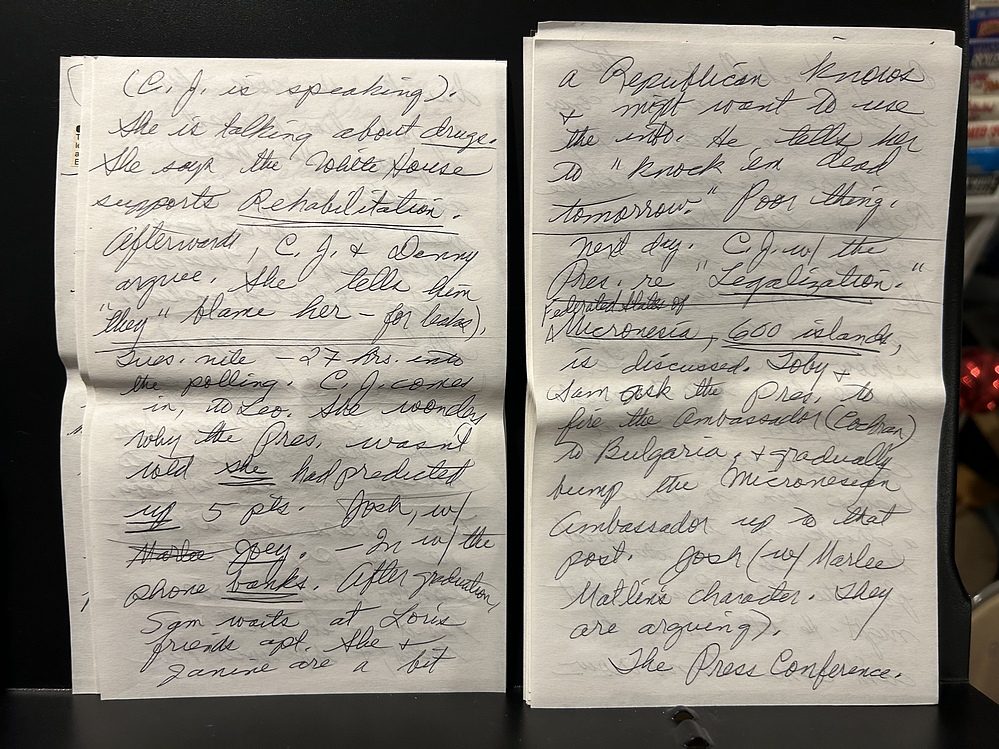 (C. J. is speaking).
She is talking about drugs.
She says the White House
supports Rehabilitation.
Afterwards, C. J. & Danny
argue. She tells him
"they" blame her – for leaks),
Tues. nite – 27 hrs. into
the polling. C. J. comes
in, to Leo. She wonders
why the Pres. wasn't
told she had predicted
up 5 pts. Josh, w/
Marlee Joey. – In w/ the
phone banks. After graduation,
Sam waits at Loris
friends apt. She &
Janine are a bit
a Republican knows
& might want to use
the info. He tells her
to "knock 'em dead
tomorrow." Poor thing.
Next day. C. J. w/ the
Pres. re "Legalization."
Federated States of
Micronesia, 600 islands,
is discussed. Toby &
Sam ask the Pres. to
fire the Ambassador (Cochran)
to Bulgaria, & gradually
bump the Micronesian
Ambassador up to that
post. Josh (w/ Marlee
Matlin's character. They
are arguing).
The Press Conference.